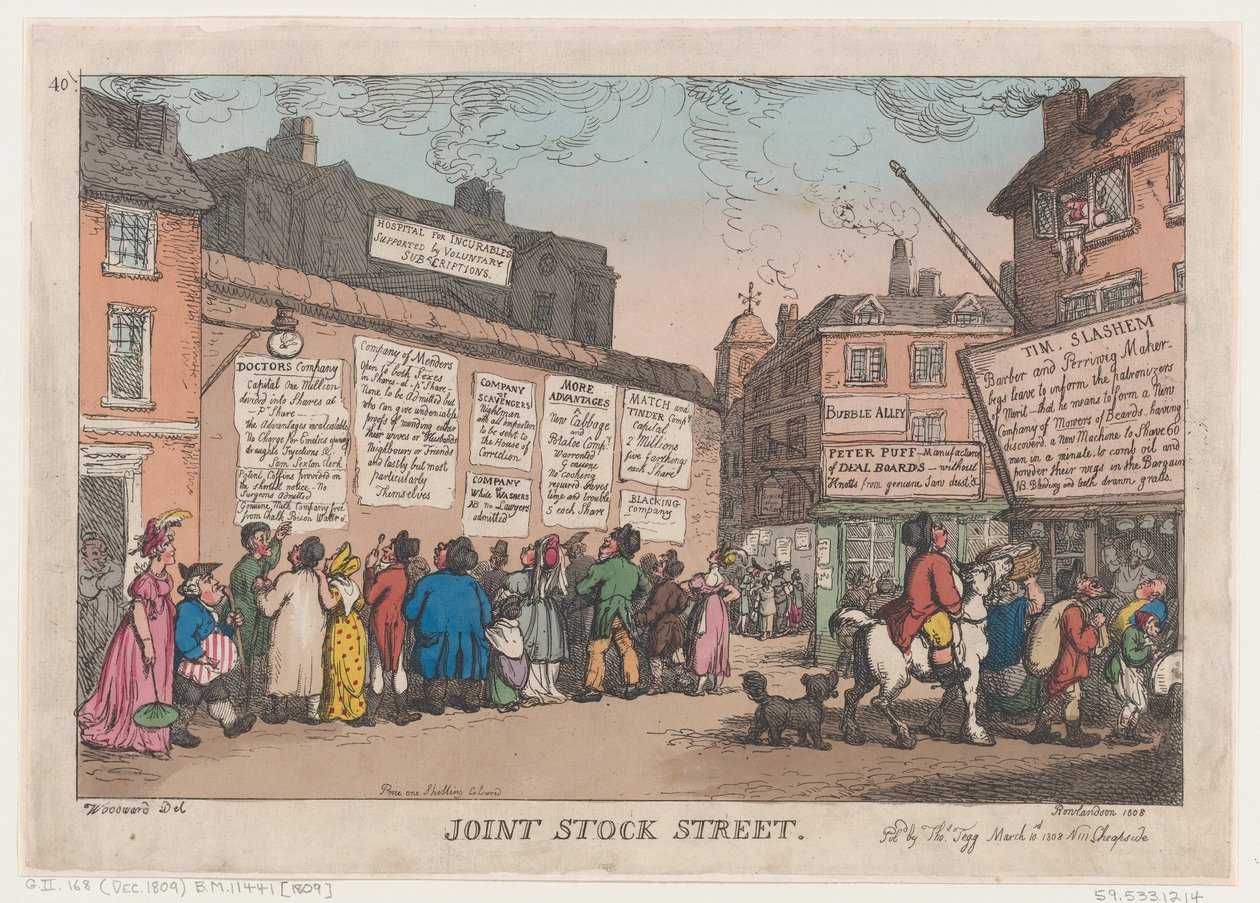 40
HOSPITAL FOR INCURABLES
SUPPORTED by VOLUNTARY
SUBSCRIPTIONS.
DOCTORS Company
Capital One Million
divided into Shares at
— Pr Share —
the Advantages incalculable
No Charge for Coaches
draughts Injections &c
Sam Sexton Clerk
Patent Coffins provided on
the shortest notice - No
Surgeons admitted
Genuine Milk Company free
from Chalk Poison Water &c
Company of Menders
Open to both Sexes
in Shares - at - pr Share -
None to be admitted but
who can give undeniable
proofs of mending either
their wives or Husbands
Neighbours or Friends
and lastly but most
particularly
Themselves
COMPANY
OF
SCAVENGERS
Nightman
and all imposters
to be sent to
the House of
Correction
COMPANY
of
White Washers
NB no Lawyers
admitted
MORE
ADVANTAGES
New Cabbage
and
Potatoe Compy
Warrented
Genuine
no Cooking
required saves
time and trouble
5 each Share
MATCH and
TINDER Compy
capital
2 Millions
five farthings
each Share
BLACKING
company
BUBBLE ALLEY
PETER PUFF - Manufactory
of DEAL BOARDS - without
Knotts from genuine Saw dust &c
TIM. SLASHEM
Barber and Perriwig Maker-
begs leave to inform the patronizers
of Merit - that he means to form a New
Company of Mowers of Beards - having
discoverd a new Machine to Shave 60
men in a minute. to comb oil and
powder their wigs in the Bargain
NB. Bleeding and teeth drawn gratis.
Price one Shilling Coloured
Woodward Del
Rowlandson 1808
JOINT STOCK STREET.
Pubd by Thos Tegg March 10 1808 N111 Cheapside
G.II. 168 (DEC. 1809) B.M. 11441 [1809]
59.533.1214